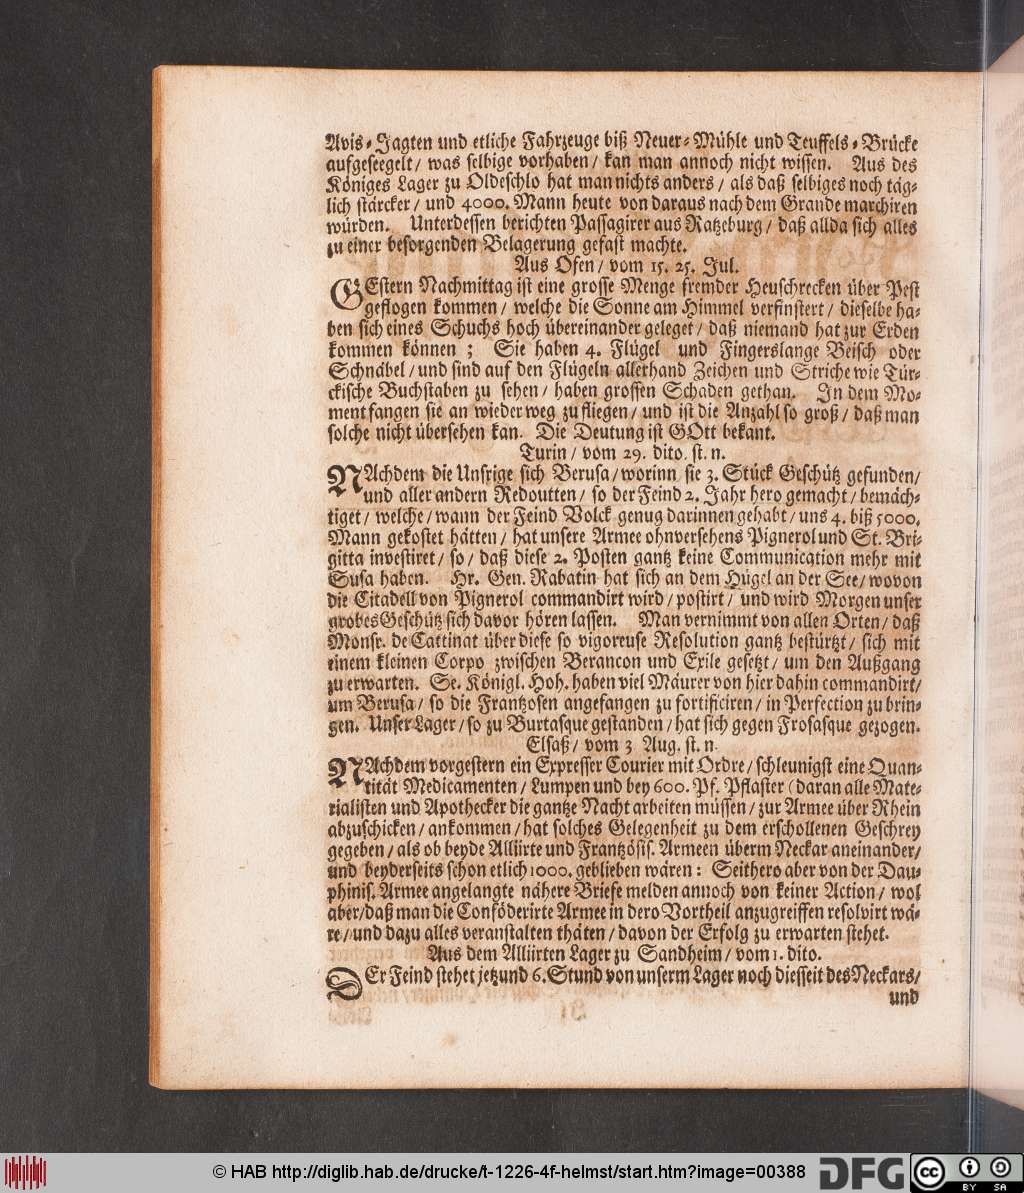 Avis-Jagten und etliche Fahrzeuge biß Neuer-Mühle und Teuffels-Brücke
aufgeseegelt/ was selbige vorhaben/ kan man annoch nicht wissen. Aus des
Königes Lager zu Oldeschlo hat man nichts anders/ als daß selbiges noch täg-
lich stärcker/ und 4000. Mann heute von daraus nach dem Grande marchiren
würden. Unterdessen berichten Passagirer aus Ratzeburg/ daß allda sich alles
zu einer besorgenden Belagerung gefast machte.
Aus Ofen/ vom 15. 25. Jul.
GEstern Nachmittag ist eine grosse Menge fremder Heuschrecken über Pest
geflogen kommen/ welche die Sonne am Himmel verfinstert/ dieselbe ha-
ben sich eines Schuchs hoch übereinander geleget/ daß niemand hat zur Erden
kommen können; Sie haben 4. Flügel und Fingerslange Beisch oder
Schnäbel/ und sind auf den Flügeln allerhand Zeichen und Striche wie Tür-
ckische Buchstaben zu sehen/ haben grossen Schaden gethan. In dem Mo-
ment fangen sie an wieder weg zu fliegen/ und ist die Anzahl so groß/ daß man
solche nicht übersehen kan. Die Deutung ist GOtt bekant.
Turin/ vom 29. dito. st. n.
NAchdem die Unsrige sich Berusa/ worinn sie 3. Stück Geschütz gefunden/
und aller andern Redoutten/ so der Feind 2. Jahr hero gemacht/ bemäch-
tiget/ welche/ wann der Feind Volck genug darinnen gehabt/ uns 4. biß 5000.
Mann gekostet hätten/ hat unsere Armee ohnversehens Pignerol und St. Bri-
gitta investiret/ so/ daß diese 2. Posten gantz keine Communication mehr mit
Susa haben. Hr. Gen. Rabatin hat sich an dem Hügel an der See/ wovon
die Citadell von Pignerol commandirt wird/ postirt/ und wird Morgen unser
grobes Geschütz sich davor hören lassen. Man vernimmt von allen Orten/ daß
Monsr. de Cattinat über diese so vigoreuse Resolution gantz bestürtzt/ sich mit
einem kleinen Corpo zwischen Berancon und Exile gesetzt/ um den Außgang
zu erwarten. Se. Königl. Hoh. haben viel Mäurer von hier dahin commandirt/
um Berusa/ so die Frantzosen angefangen zu fortificiren/ in Perfection zu brin-
gen. Unser Lager/ so zu Burtasque gestanden/ hat sich gegen Frosasque gezogen.
Elsaß/ vom 3 Aug. st. n.
NAchdem vorgestern ein Expresser Courier mit Ordre/ schleunigst eine Quan-
tität Medicamenten/ Lumpen und bey 600. Pf. Pflaster (daran alle Mate-
rialisten und Apothecker die gantze Nacht arbeiten müssen/ zur Armee über Rhein
abzuschicken/ ankommen/ hat solches Gelegenheit zu dem erschollenen Geschrey
gegeben/ als ob beyde Alliirte und Frantzösis. Armeen überm Neckar aneinander/
und beyderseits schon etlich 1000. geblieben wären: Seithero aber von der Dau-
phinis. Armee angelangte nähere Briefe melden annoch von keiner Action/ wol
aber/ daß man die Conföderirte Armee in dero Vortheil anzugreiffen resolvirt wä-
re/ und dazu alles veranstalten thäten/ davon der Erfolg zu erwarten stehet.
Aus dem Alliirten Lager zu Sandheim/ vom 1. dito.
DEr Feind stehet jetzund 6. Stund von unserm Lager noch diesseit des Neckars/
und
© HAB http://diglib.hab.de/drucke/t-1226-4f-helmst/start.htm?image=00388
DFG
cc BY SA